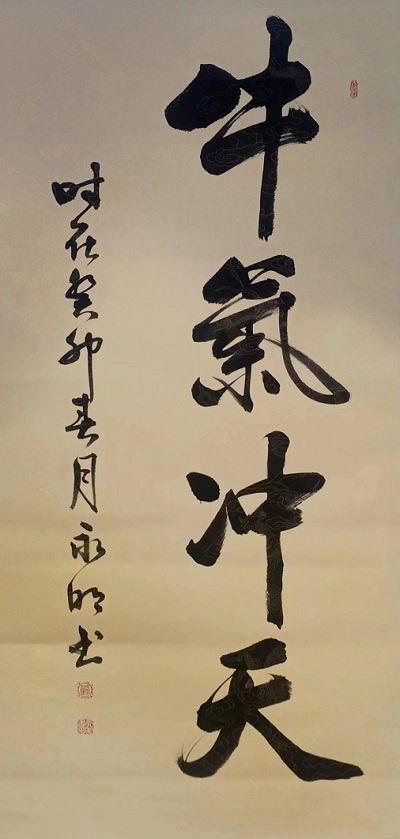 牛氣冲天
时在癸卯春月永明书